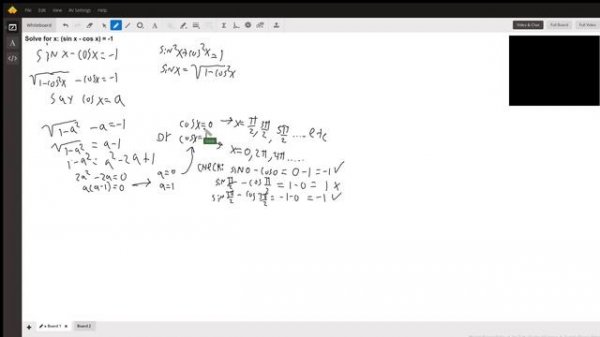 FILE EDIT AV Settings HELP
Whiteboard
Video & Chat
Full Board
Solve for x: (sin x - cos x) = -1
sin x - cos x = -1
sin²x + cos²x = 1
sin x = √1-cos²x
√1-cos²x - cos x = -1
say cos x = a
√1-a² - a = -1
√1-a² = a-1
1-a² = a² - 2a + 1
2a² - 2a = 0
a(a-1) = 0 →
a=0
a=1
cos x = 0 → x = π/2, 3π/2, 5π/2 .... etc
or cos x =
x = 0, 2π, 4π .....
CHECK: sin 0 - cos 0 = 0 - 1 = -1 ✓
sin π/2 - cos π/2 = 1 - 0 = 1 x
= -1 - 0 = -1 ✓
Board 1
Board 2